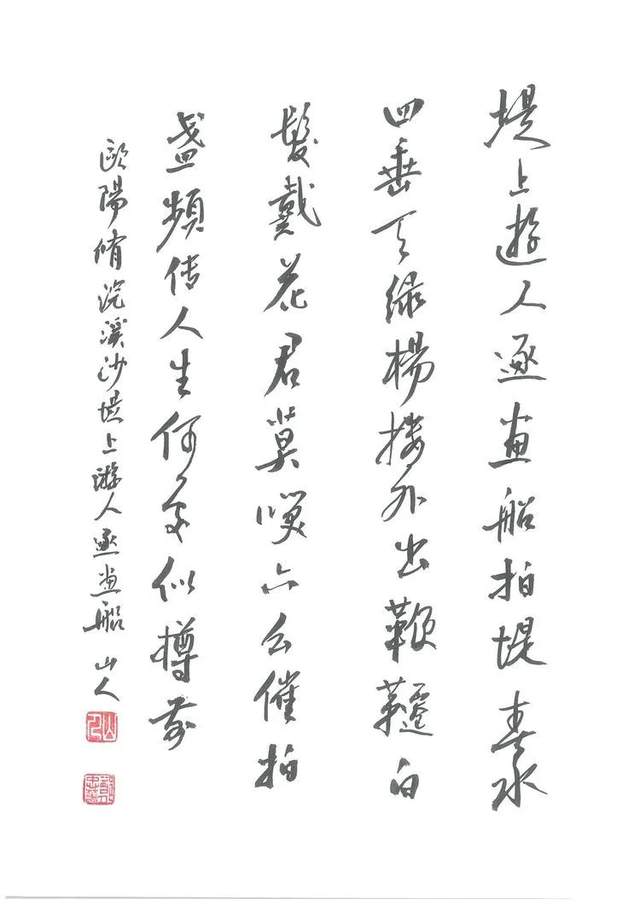 堤上遊人逐畫船拍堤春水
四垂天绿楊樓外出鞦韆白
髮戴花君莫咲六幺催拍
盏頻传人生何處似樽前
歐陽脩浣溪沙堤上游人逐畫船 山人
山人